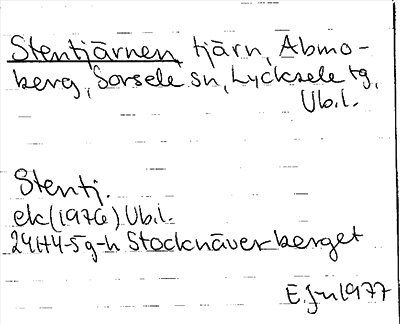 Stentjärnen tjärn, Abmo-
berg, Sorsele sn, Lycksele tg,
Vb.l.
Stentj.
ek (1976) Vb.l.
24H4-5g-h Stocknäverberget
E. Jn 1977